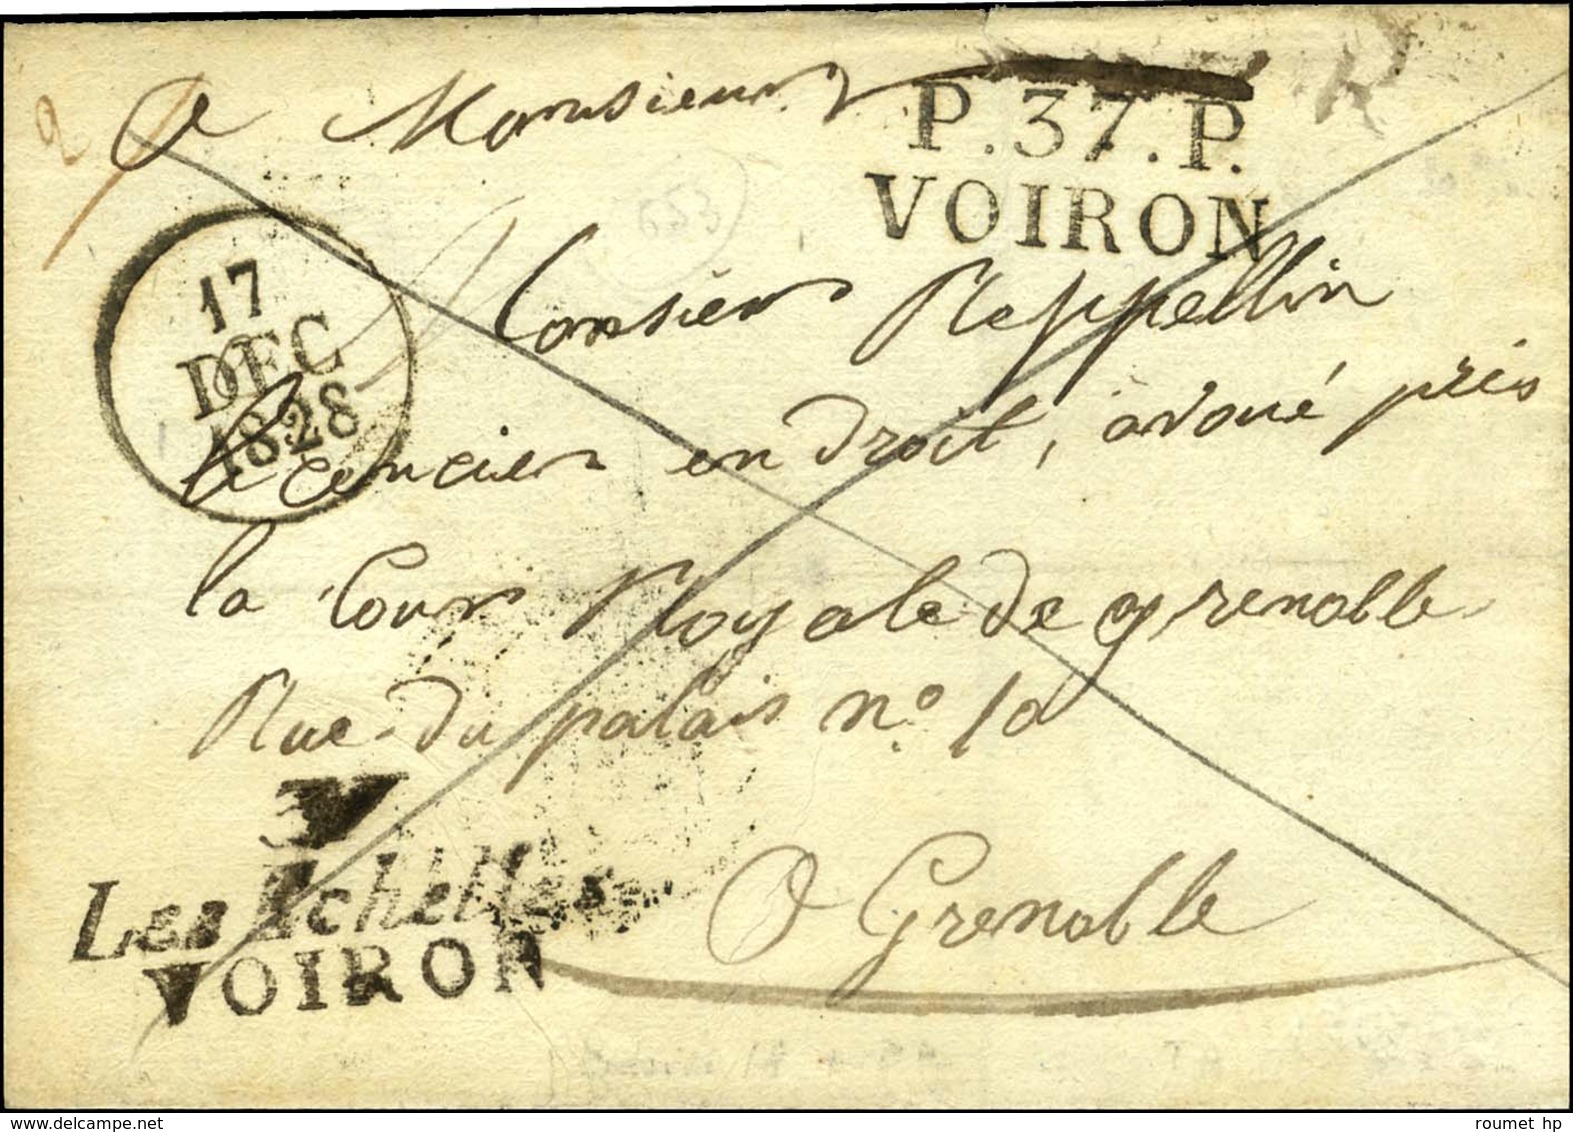 a Monsieur
P.37.P.
VOIRON
653
17
DEC
1828
Monsieur Reppellin
licencier en droit, avoué près
la Cour Royale de grenoble
Rue du palais n.o 10
37
Les Echelles
VOIRON
A Grenoble
roumet hp